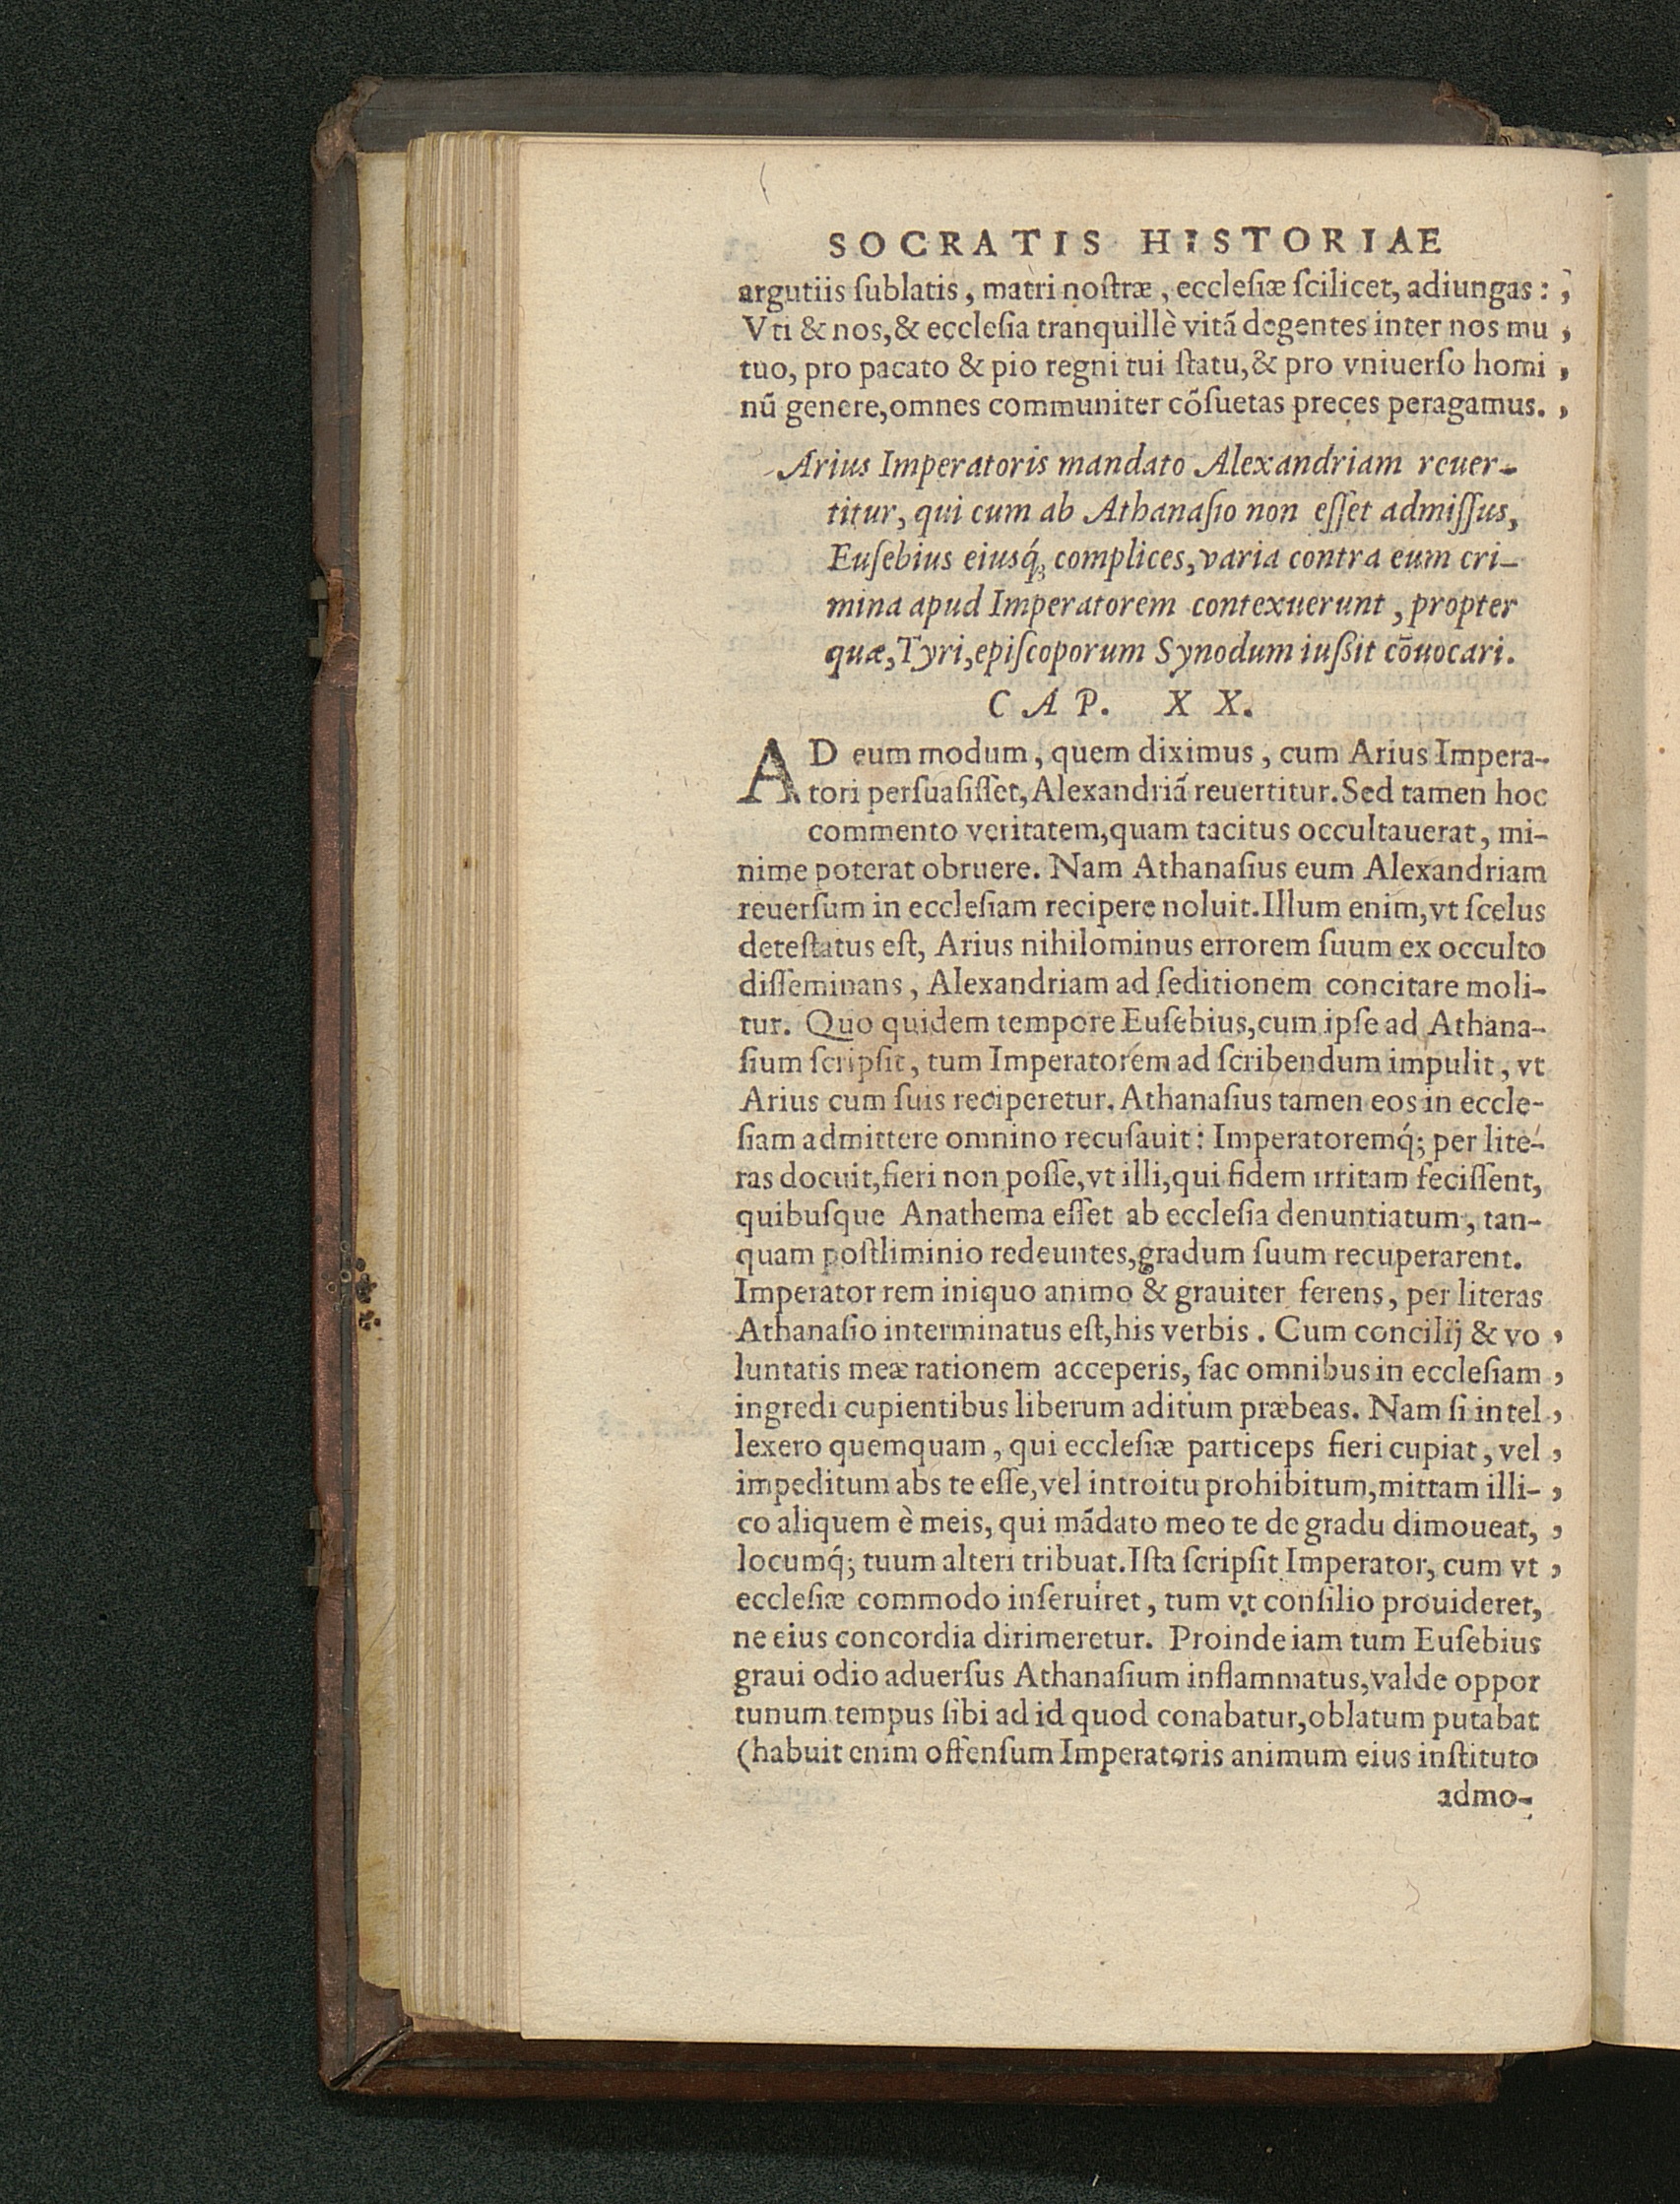 SOCRATIS HISTORIAE
argutiis ſublatis, matri noſtræ, ecclesiæ ſcilicet, adiungas: ,
Vti & nos, & eccleſia tranquillè vitã degentes inter nos mu ,
tuo, pro pacato & pio regni tui ſtatu, & pro vniuerſo homi ,
nũ genere, omnes communiter cõſuetas preces peragamus. ,
Arius Imperatoris mandato Alexandriam reuer-
titur, qui cum ab Athanaſio non eſſet admiſſus,
Euſebius eiusq́ꝫ complices, varia contra eum cri-
mina apud Imperatorem contexuerunt, propter
quæ, Tyri, epiſcoporum Synodum iuſsit cõuocari.
CAP. XX.
AD eum modum, quem diximus, cum Arius Impera-
tori perſuaſiſſet, Alexandriã reuertitur. Sed tamen hoc
commento veritatem, quam tacitus occultauerat, mi-
nime poterat obruere. Nam Athanaſius eum Alexandriam
reuerſum in eccleſiam recipere noluit. Illum enim, vt ſcelus
deteſtatus eſt, Arius nihilominus errorem ſuum ex occulto
diſſeminans, Alexandriam ad ſeditionem concitare moli-
tur. Quo quidem tempore Euſebius, cum ipſe ad Athana-
ſium ſcripſit, tum Imperatorem ad ſcribendum impulit, vt
Arius cum ſuis reciperetur. Athanaſius tamen eos in eccle-
ſiam admittere omnino recuſauit: Imperatoremq́; per lite-
ras docuit, fieri non poſſe, vt illi, qui fidem irritam feciſſent,
quibuſque Anathema eſſet ab eccleſia denuntiatum, tan-
quam poſtliminio redeuntes, gradum ſuum recuperarent.
Imperator rem iniquo animo & grauiter ferens, per literas
Athanaſio interminatus eſt, his verbis. Cum concilij & vo ,
luntatis meæ rationem acceperis, fac omnibus in eccleſiam ,
ingredi cupientibus liberum aditum præbeas. Nam ſi intel ,
lexero quemquam, qui eccleſiæ particeps fieri cupiat, vel ,
impeditum abs te eſſe, vel introitu prohibitum, mittam illi- ,
co aliquem è meis, qui mãdato meo te de gradu dimoueat, ,
locumq́; tuum alteri tribuat. Iſta ſcripſit Imperator, cum vt ,
eccleſiæ commodo inſeruiret, tum vt conſilio prouideret,
ne eius concordia dirimeretur. Proinde iam tum Euſebius
graui odio aduerſus Athanaſium inflammatus, valde oppor
tunum tempus ſibi ad id quod conabatur, oblatum putabat
(habuit enim offenſum Imperatoris animum eius inſtituto
admo-